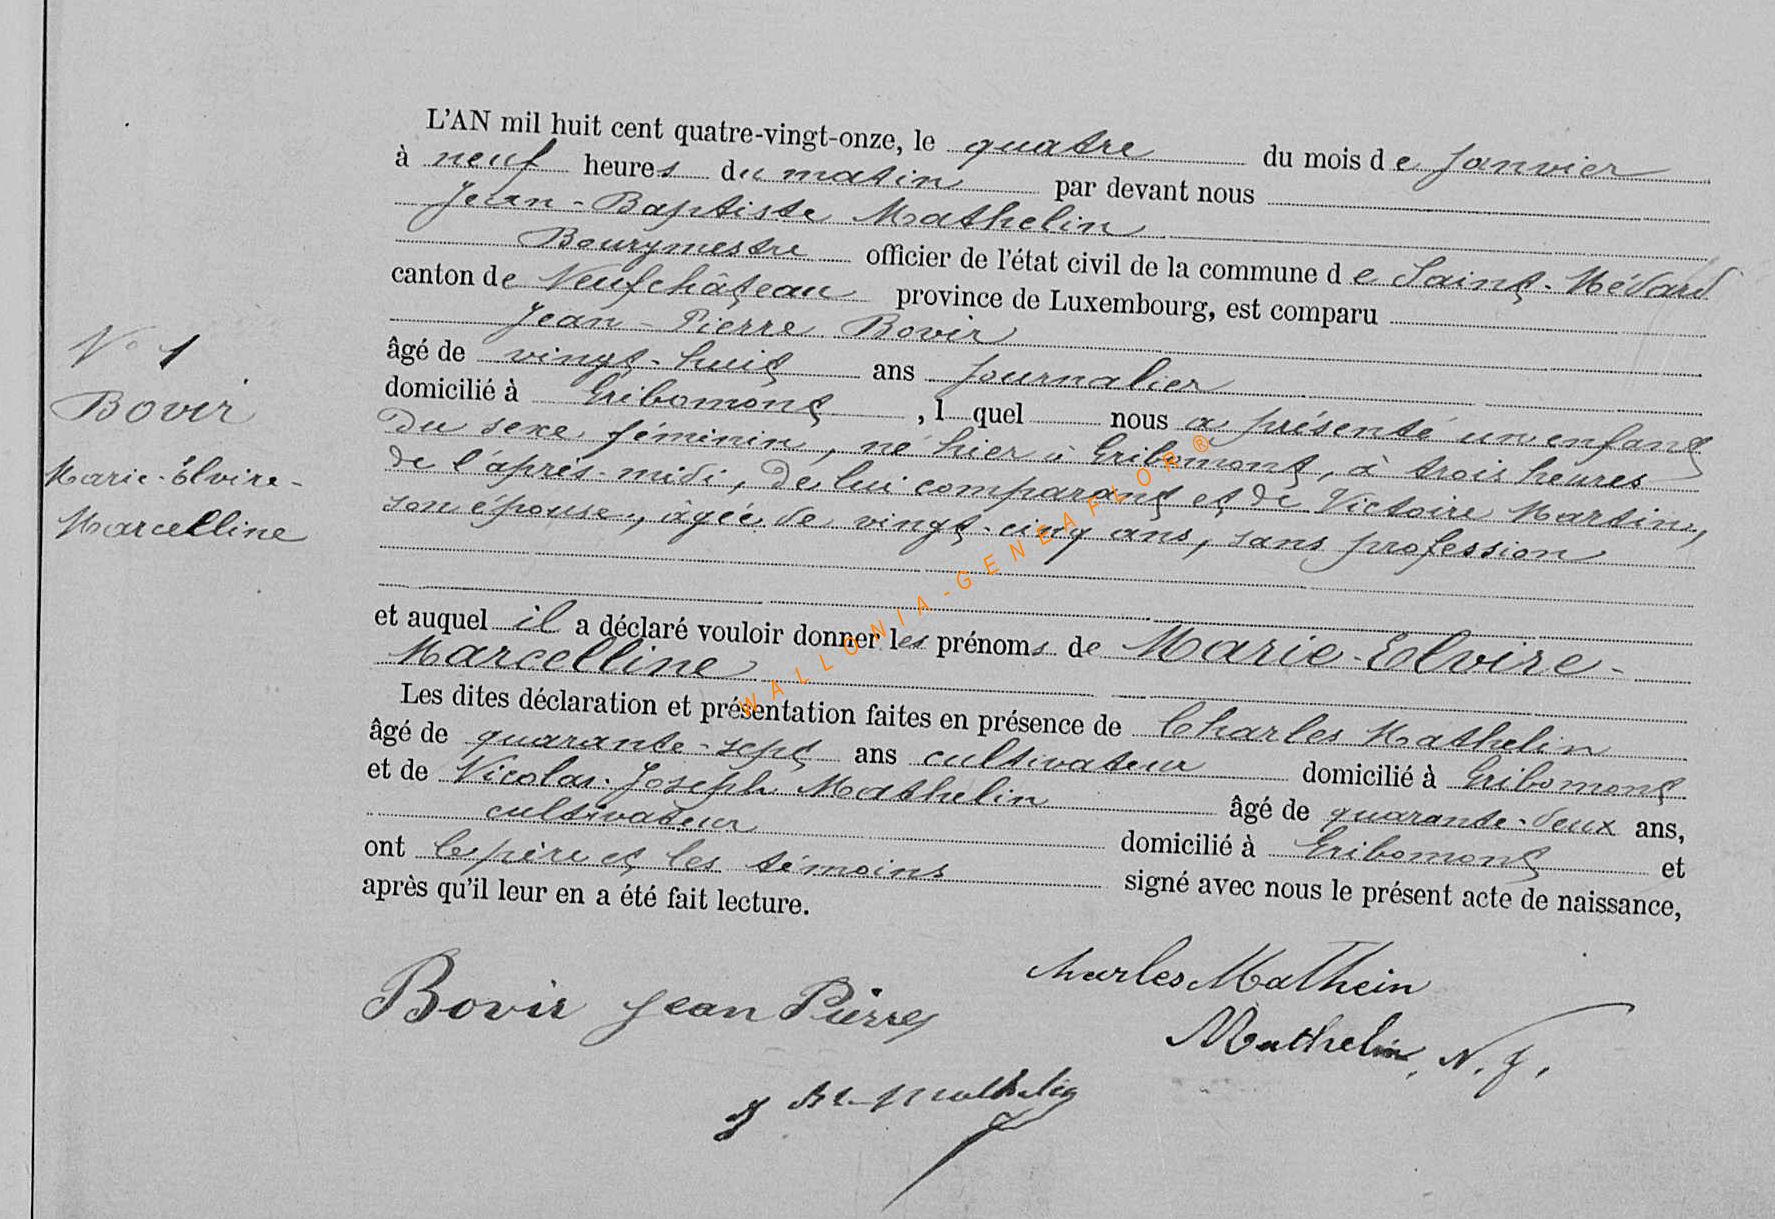 L'AN mil huit cent quatre-vingt-onze, le quatre du mois de Janvier
à neuf heures du matin par devant nous
Jean-Baptiste Mathelin
Bourgmestre officier de l'état civil de la commune de Saint-Médard
canton de Neufchâteau province de Luxembourg, est comparu
Jean-Pierre Bovir
âgé de vingt-huit ans Journalier
domicilié à Gribomont, l quel nous a présenté un enfant
du sexe féminin, né hier à Gribomont, à trois heures
de l'après-midi, de lui comparant et de Victoire Martin,
son épouse, âgée de vingt-cinq ans, sans profession
et auquel il a déclaré vouloir donner les prénoms de Marie-Elvire-
Marcelline
Les dites déclaration et présentation faites en présence de Charles Mathelin
âgé de quarante-sept ans cultivateur domicilié à Gribomont
et de Nicolas-Joseph Mathelin âgé de quarante-deux ans,
cultivateur domicilié à Gribomont et
ont le père et les témoins signé avec nous le présent acte de naissance,
après qu'il leur en a été fait lecture.
N° 1
Bovir
Marie-Elvire-
Marcelline
Bovir Jean Pierre
Charles Mathein
Mathelin, N. J.
J Bte Mathelin
WALLONIA-GENEAFLOR®